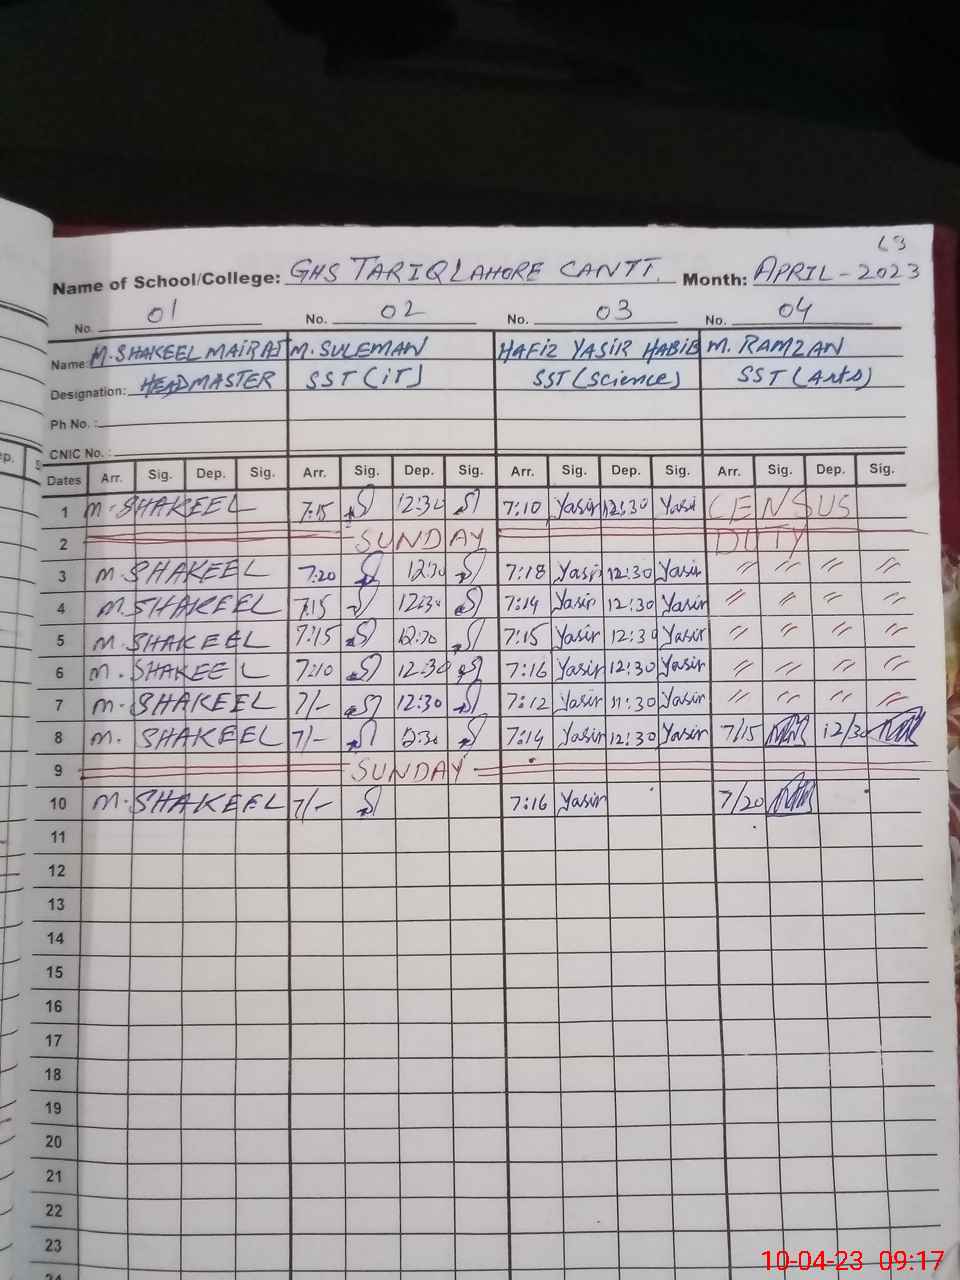 63
Name of School/College: GHS TARIQ LAHORE CANTT. Month: APRIL - 2023
No. 01 No. 02 No. 03 No. 04
Name: M. SHAKEEL MAIRAJ M. SULEMAN HAFIZ YASIR HABIB M. RAMZAN
Designation: HEADMASTER SST (iT) SST (Science) SST (Arts)
Ph No. :
CNIC No. :
Dates Arr. Sig. Dep. Sig. Arr. Sig. Dep. Sig. Arr. Sig. Dep. Sig. Arr. Sig. Dep. Sig.
1 M. SHAKEEL 7:15 12:30 7:10 Yasir 12:30 Yasir CENSUS
2 SUNDAY DUTY
3 M. SHAKEEL 7:20 12:30 7:18 Yasir 12:30 Yasir " " " "
4 M. SHAKEEL 7:15 12:30 7:14 Yasir 12:30 Yasir " " " "
5 M. SHAKEEL 7:15 12:30 7:15 Yasir 12:30 Yasir " " " "
6 M. SHAKEEL 7:10 12:30 7:16 Yasir 12:30 Yasir " " " "
7 M. SHAKEEL 7/- 12:30 7:12 Yasir 11:30 Yasir " " " "
8 M. SHAKEEL 7/- 12:30 7:14 Yasir 12:30 Yasir 7/15 12/30
9 SUNDAY
10 M. SHAKEEL 7/- 7:16 Yasir 7/20
11
12
13
14
15
16
17
18
19
20
21
22
23
24
10-04-23 09:17